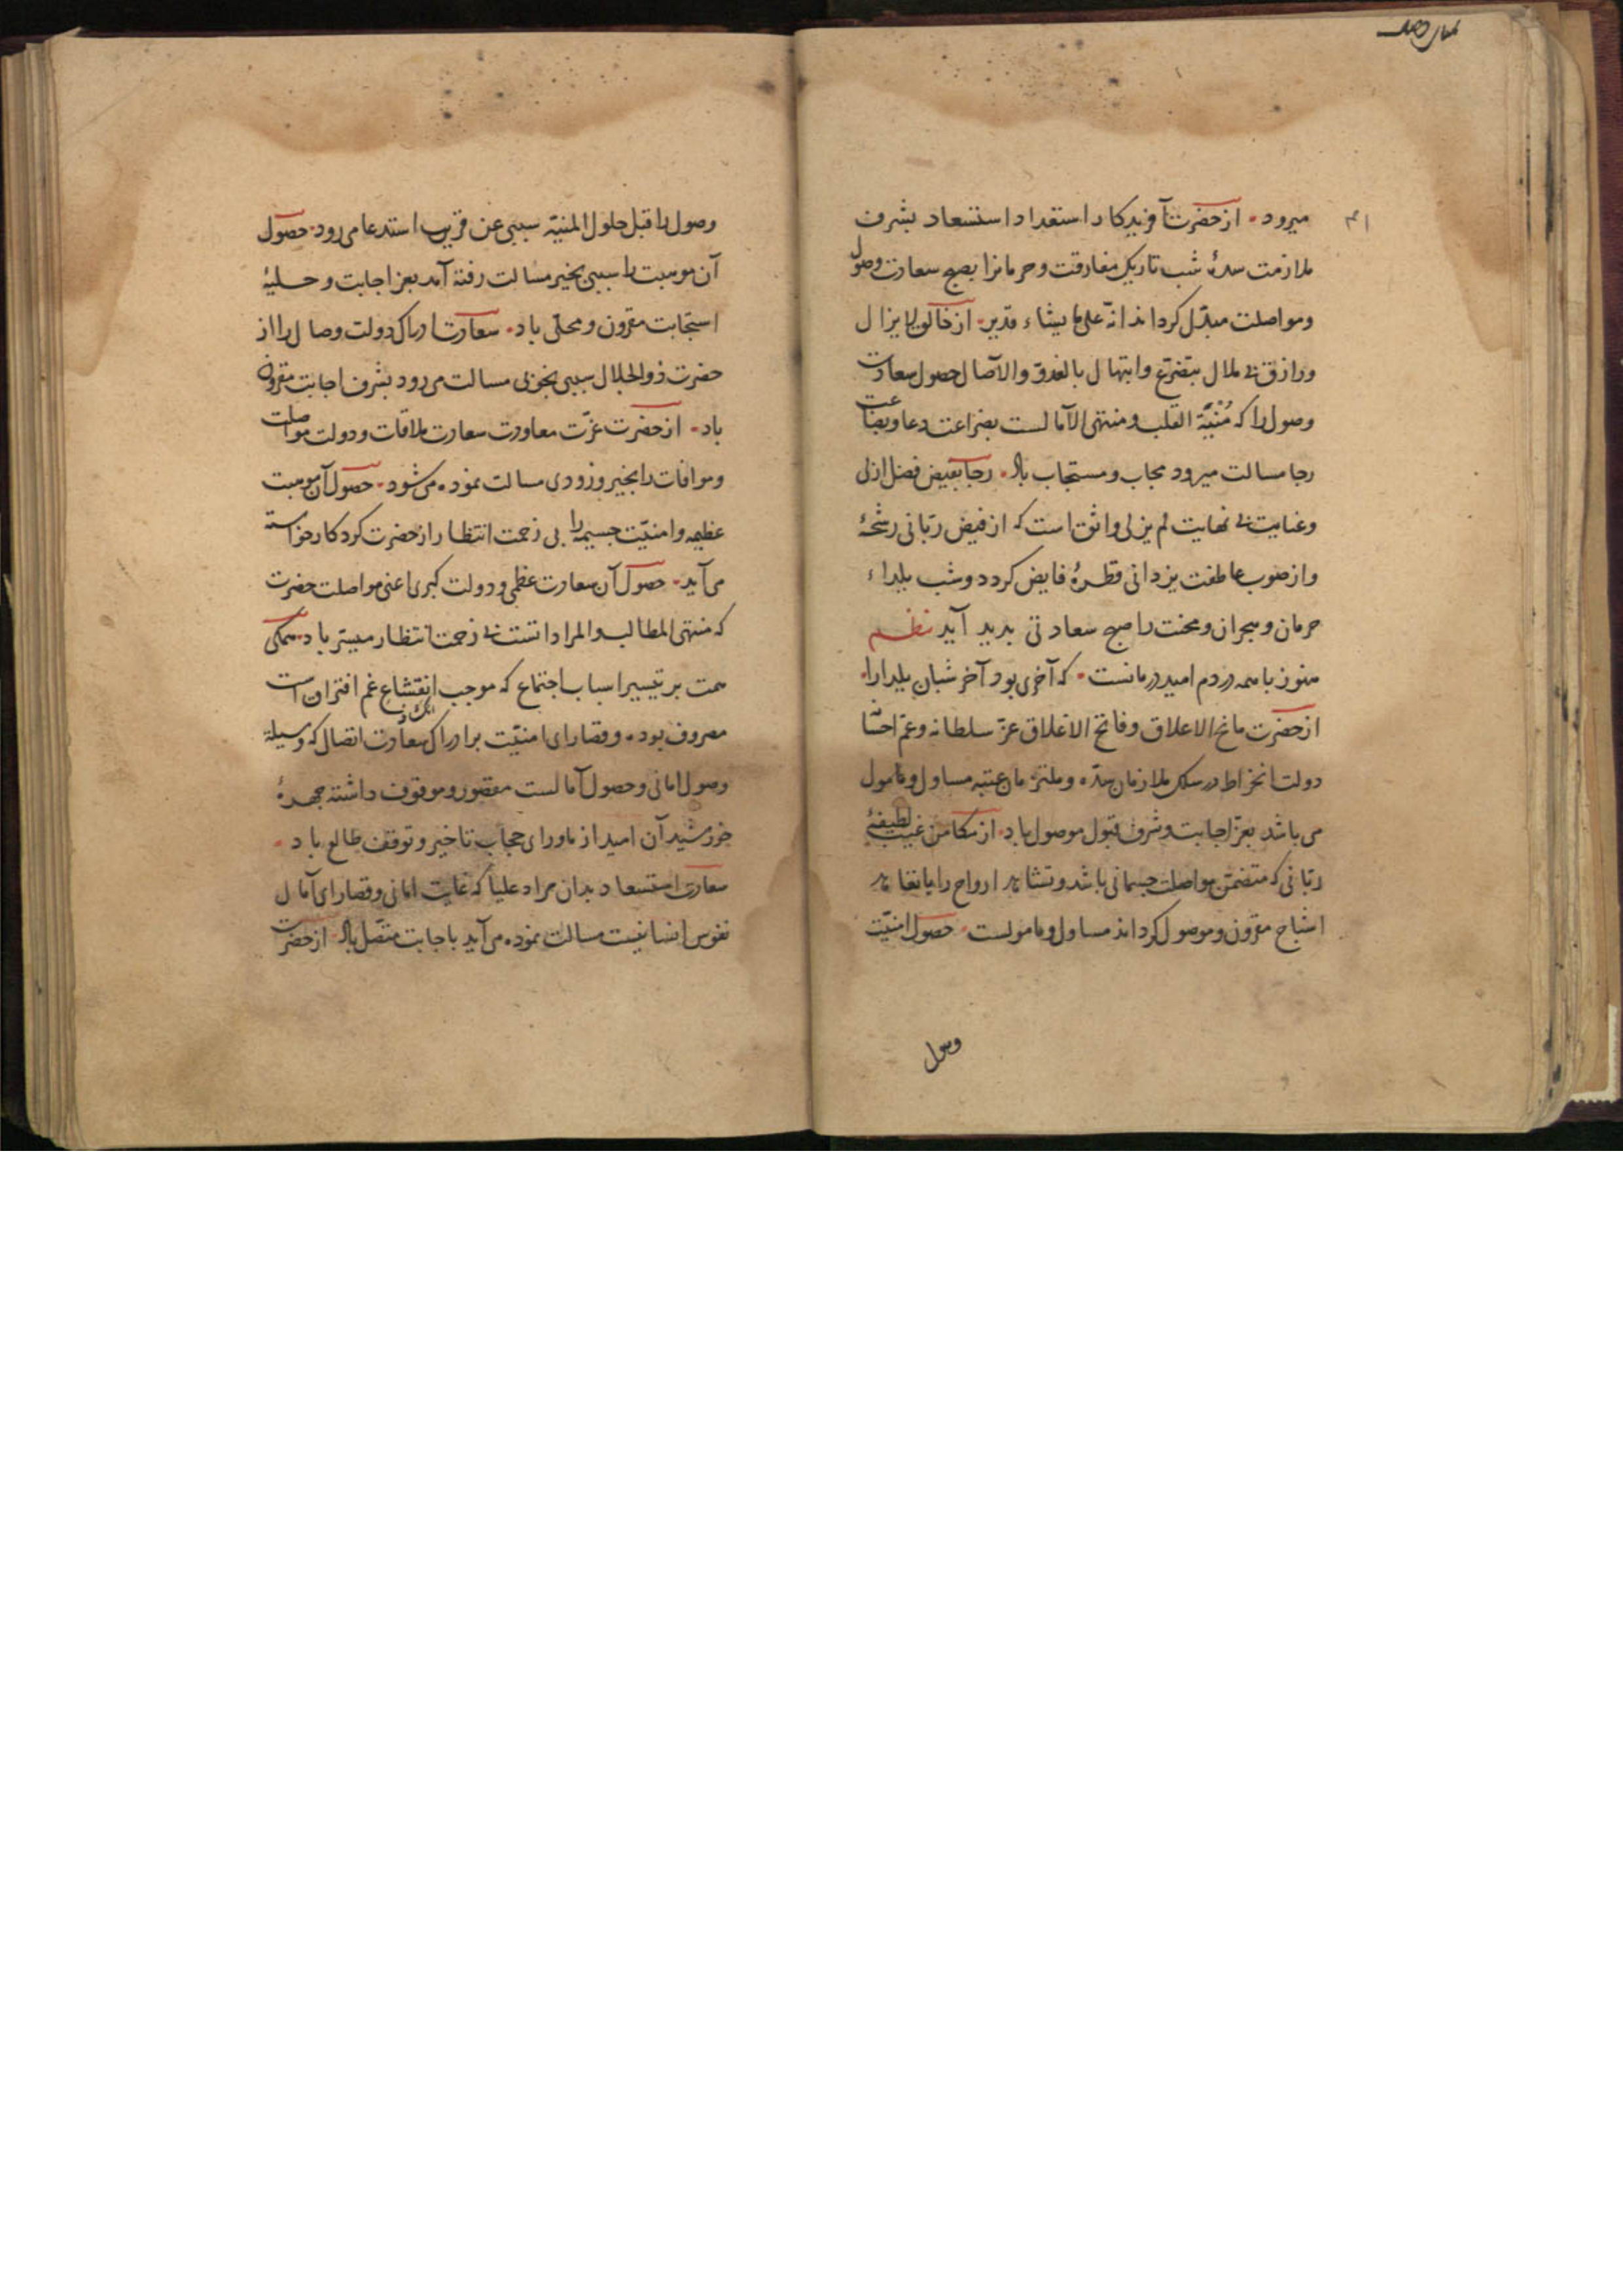 میرود. از حضرت آفریدکار استعداد استسعاد بشرف
ملازمت سدهٔ شب تاریک مفارقت و حرمانرا بصبح سعادت وصول
و مواصلت مبدّل کرداند انّه علی ما یشاء قدیر. از خالق لا یزال
و رازق بی ملال بتضرّع و ابتهال بالغدوّ والآصال حصول سعادت
وصول را که مُنْیَة القلب و منتهی الآمالست بضراعت دعا و بضاعت
رجا مسالت میرود مجاب و مستجاب باد. رجا بفیض فضل ازلی
و عنایت بی نهایت لم یزلی واثق است که از فیض ربّانی رشحهٔ
و از صوب عاطفت یزدانی قطرهٔ فایض کردد و شب یلداء
حرمان و هجران و محنت را صبح سعادتی بدید آید نظم
هنوز با همه دردم امید درمانست. که آخری بود آخر شبان یلدارا.
از حضرت مانح الاعلاق و فاتح الاغلاق عزّ سلطانه و عمّ احسانه
دولت انخراط در سلک ملازمان سدّه و ملتزمان عتبه مساول و مامول
می باشد بعزّ اجابت و شرف قبول موصول باد. از مکامن غیب لطیفهٔ
ربّانی که متضمّن مواصلت جسمانی باشد و تشاهد ارواح را با تعاهد
اشباح مقرون و موصول کرداند مساول و مامولست. حصول امنیّت
وصول
وصول را قبل حلول المنیّه سببی عن قریب استدعا می رود. حصول
آن موهبت را سببی بخیر مسالت رفته آمد بعز اجابت و حلیهٔ
استجابت مقرون و محلّی باد. سعادت ادراک دولت وصال را از
حضرت ذوالجلال سببی بخوبی مسالت می رود بشرف اجابت مقرون
باد. از حضرت عزّت معاودت سعادت ملاقات و دولت مواصلت
و موافات را بخیر و زودی مسالت نموده می شود. حصول آن موهبت
عظیمه و امنیّت جسیمه را بی زحمت انتظار از حضرت کردکار خواسته
می آید. حصول آن سعادت عظمی و دولت کبری اعنی مواصلت حضرت
که منتهی المطالب و المراداتست بی زحمت انتظار میسّر باد. همکی
همت بر تیسیر اسباب اجتماع که موجب انقشاع غم افتران است
مصروف بوده و قصارای امنیّت بر ادراک سعادت اتصال که وسیلهٔ
وصول امانی و حصول آمالست مقصور و موقوف داشته چهرهٔ
خورشید آن امید از ماورای حجاب تاخیر و توقف طالع باد.
سعادت استسعاد بدان مراد علیا که غایت امانی و قصارای آمال
نفوس انسانیست مسالت نموده می آید باجابت متصل باد. از حضرت